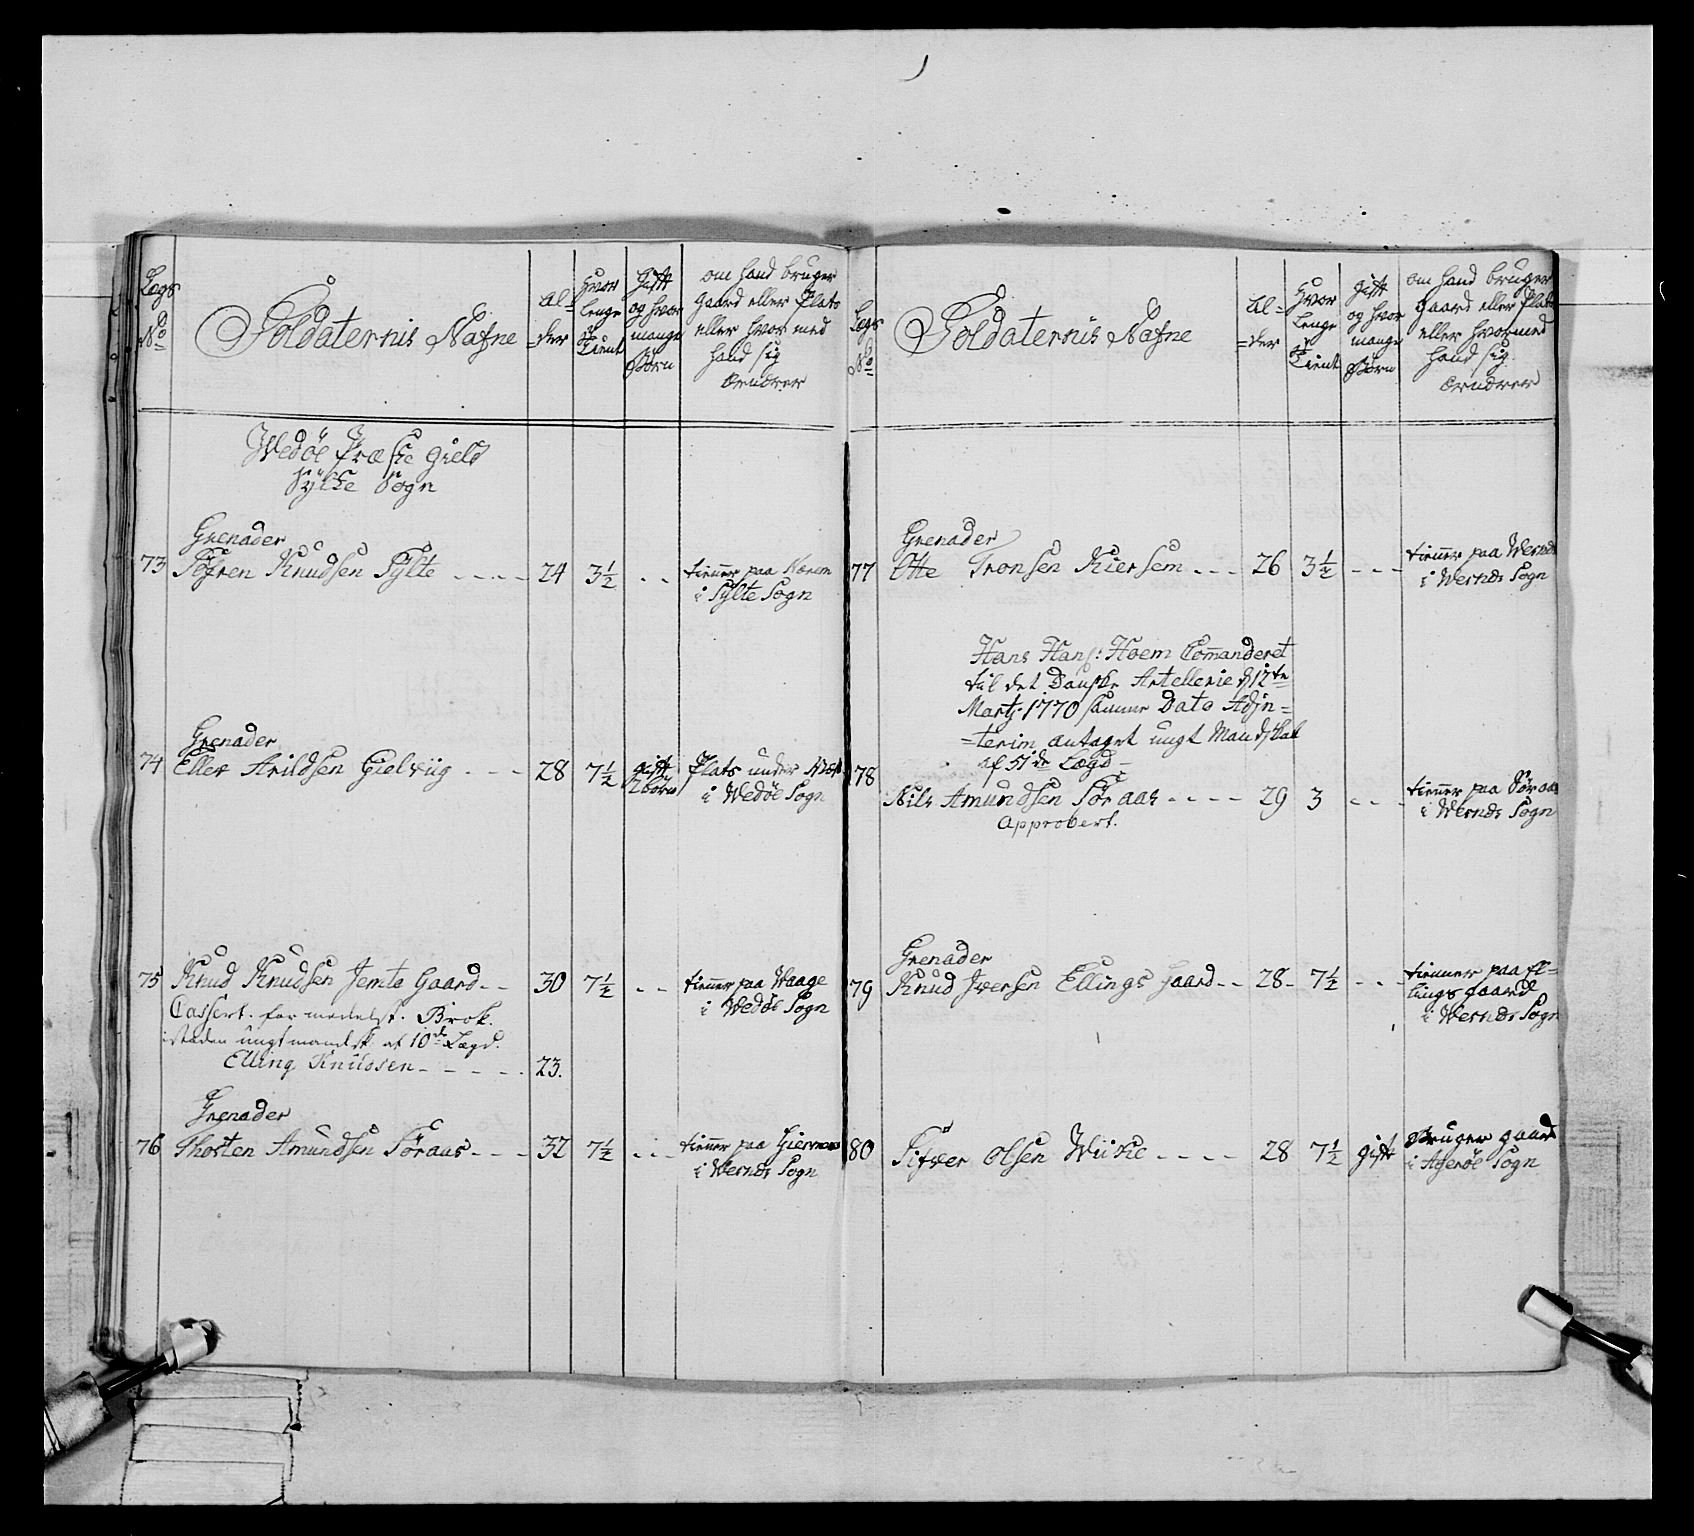 Lægs
No
Soldaternis Nafne
Al=
=der
Hvor
Lenge
Tient
Gift
og hvor
mange
Børn
om hand bruger
gaard eller Plats
eller hvor med
hand sig
ærnærer
Wedøe Præste gield
Sylte Sogn
Grenader
73 Sefren Knudsen Sylte - - - - 24 3½ - - tienner paa Nærem
i Sylte Sogn
Grenader
74 Eller Arildsen Gielviig - - - 28 7½ gift Plats under
2 børn i Wedøe Sogn
75 Knud Knudsen Jemte Gaard - - 30 7½ - - tienner paa Waage
i Wedøe Sogn
Cassert. formedelst. Brok.
isteden ungt mandsk. af 10de Lægd.
Elling Knudsen - - - - - 23.
Grenader
76 Thosten Amundsen Søraas - - - 32 7½ - - - tienner paa
i Wernds Sogn
Lægs
No
Soldaternis Nafne
Al=
=der
Hvor
Lenge
Tient
gift
og hvor
mange
Børn
om hand bruger
gaard eller Plats
eller hvormed
hand sig
ærnærer
Grenader
77 Otte Tronsen Kiersem - - - 26 3½ - - - tienner paa Wernds
i Wernds Sogn
Hans Hans: Hoem Comanderet
til det Danske Artellerie d 12te
Martj. 1770 samme Dato Adjn=
=terim antaget ungt Mandskab
af 51de Lægd -
78 Nils Amundsen Søraas - - - - 29 3 - - - tienner paa Søraas
i Wernds Sogn
Approbert.
Grenader
79 Knud Iversen Ellings gaard - - 28 - 7½ - - - tienner paa El=
lings gaard
i Wernds Sogn
80 Sifver Olsen Wiisic - - - - 28 7½ gift Bruger gaard
i Agerøe Sogn